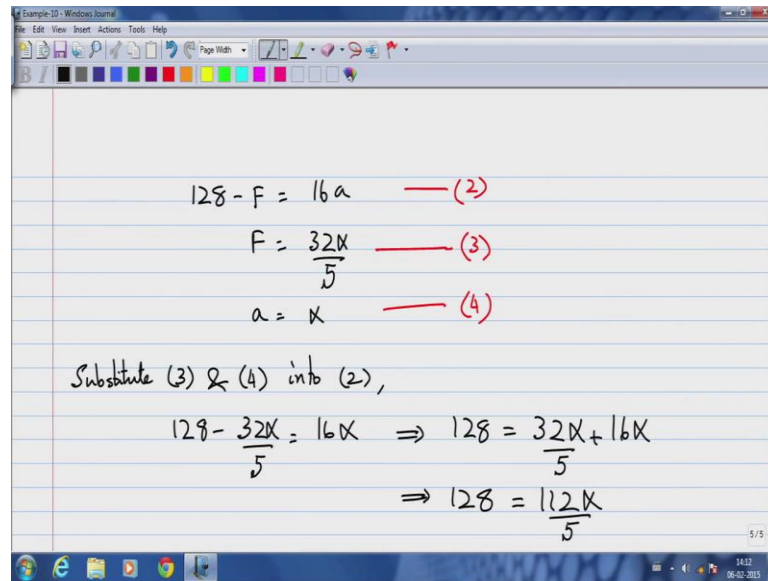 Example-10 - Windows Journal
File Edit View Insert Actions Tools Help
Page Width
B I
128 - F = 16α
F = 32α/5 —— (3)
a = α —— (4)
Substitute (3) & (4) into (2),
128 - 32α/5 = 16α ⇒ 128 = 32α/5 + 16α
⇒ 128 = 112α/5
5/5
14:12
06-02-2015